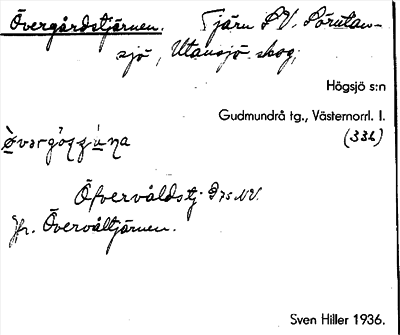 Övergårdstjärnen. Tjärn S.V. Sörutan-
sjö, Utansjö skog,
Högsjö s:n
Gudmundrå tg., Västernorrl. l.
(336)
Öfvervåldstj. D 75 N.V.
Jfr. Övervåltjärnen.
Sven Hiller 1936.